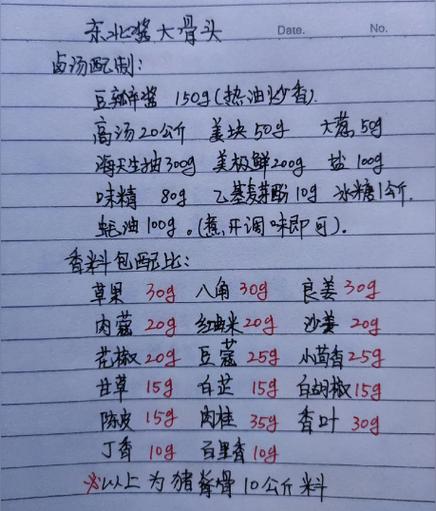 东北酱大骨头 Date. No.
卤汤配制:
豆瓣酱 150g(热油炒香).
高汤20公斤 姜块50g 大葱50g
海天生抽300g 美极鲜200g 盐100g
味精 80g 乙基麦芽酚10g 冰糖1公斤.
蚝油100g。(煮开调味即可).
香料包配比:
草果 30g 八角30g 良姜30g
肉蔻20g 红曲米20g 沙姜20g
花椒20g 豆蔻25g 小茴香25g
甘草15g 白芷15g 白胡椒15g
陈皮15g 肉桂35g 香叶30g
丁香10g 百里香10g
※以上为猪脊骨10公斤料